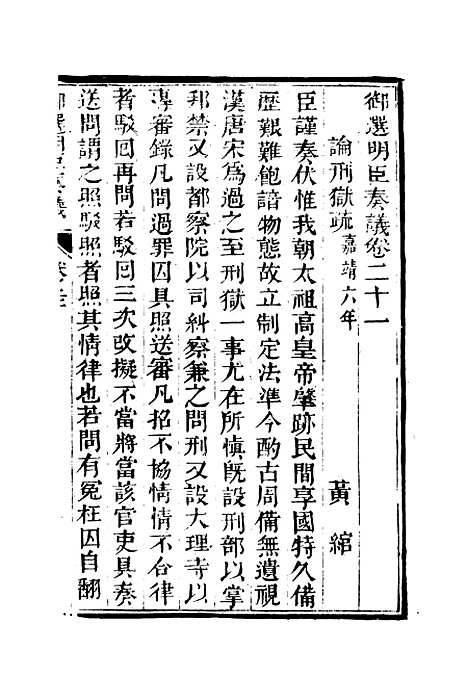 御選明臣奏議卷二十一
論刑獄疏嘉靖六年 黃綰
臣謹奏伏惟我朝太祖高皇帝肇跡民間享國特久備
歷艱難飽諳物態故立制定法準今酌古周備無遺視
漢唐宋為過之至刑獄一事尤在所慎既設刑部以掌
邦禁又設都察院以司糾察兼之問刑又設大理寺以
專審錄凡問過罪囚具照送審凡招不協情情不合律
者駁回再問若駁回三次改擬不當將當該官吏具奏
送問謂之照駁照者照其情律也若問有冤枉囚自翻
御選明臣奏議 卷二十一